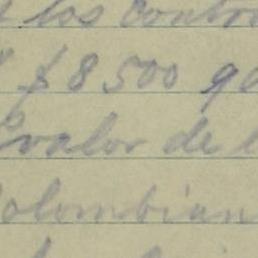 los contro
$ 8 500 qu
valor de l
Colombian